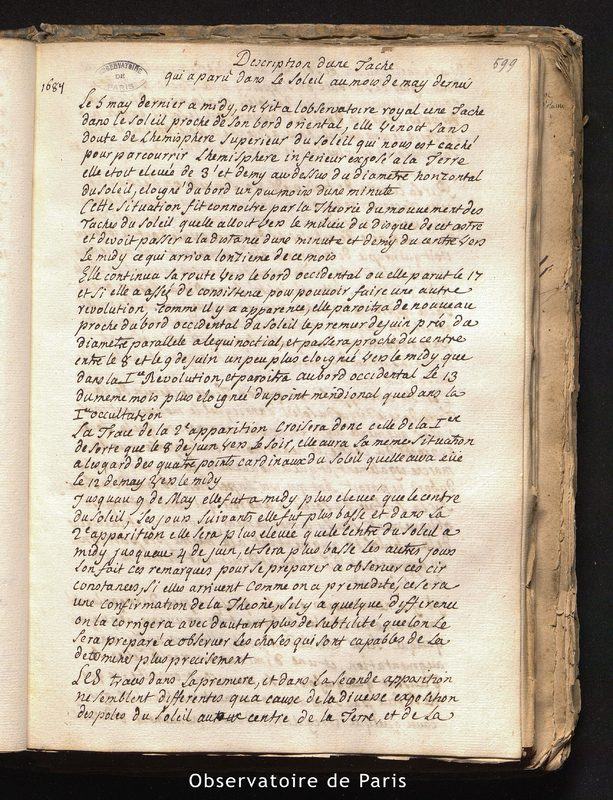 Description d'une Tache
599
qui a paru dans Le Soleil au mois de may dernier
OBSERVATOIRE
DE
PARIS
1684
Le 5 may dernier a midy, on vit a lobservatoire royal une Tache
dans le Soleil proche de son bord oriental, elle venoit sans
doute de Lhemisphere superieur du soleil qui nous est caché
pour parcourrir Lhemisphere inferieur exposé a la Terre
elle étoit elevée de 3' et demy au dessus du diametre horizontal
du soleil, eloigné du bord un peu moins dune minute
Cette situation fit connoitre par la Theorie du mouvement des
Taches du Soleil quelle alloit vers le milieu du disque de cet astre
et devoit passer a la distance dune minute et demy du centre vers
le midy ce qui arriva lonzieme de ce mois
Elle continua sa route vers le bord occidental ou elle parut le 17
et si elle a assés de consistence pour pouvoir faire une autre
revolution, comme il y a apparence, elle paroitra de nouveau
proche du bord occidental du soleil le premier de juin prés du
diametre parallele a lequinoctial, et passera proche du centre
entre le 8 et le 9 de juin un peu plus eloignée vers le midy que
dans la Ire Revolution, et paroitra au bord occidental Le 13
du meme mois plus eloignée du point meridional que dans la
Ire occultation
La Trace de la 2e apparition Croisera donc celle de la Iere
de sorte que le 8 de juin vers le soir, elle aura sa meme situation
a lesgard des quatre points cardinaux du soleil quelle avoit eüe
le 12 de may vers le midy
Jusquau 9 de May elle fut a midy plus elevée que le centre
du soleil, les jours suivants elle fut plus basse et dans la
2e apparition elle sera plus elevée que le centre du soleil a
midy jusquau 4 de juin, et sera plus basse les autres jours
Lon fait ces remarques pour se preparer a observer ces cir
constances, si elles arrivent comme on a premedité, ce sera
une confirmation de la Theorie, sil y a quelque difference
on la corrigera avec dautant plus de subtilité que lon se
sera preparé a observer les choses qui sont capables de la
determiner plus precisement
LES traces dans la premiere, et dans la seconde apparition
ne semblent differentes qu a cause de la diverse exposition
des poles du Soleil au centre de la Terre, et de la
Observatoire de Paris